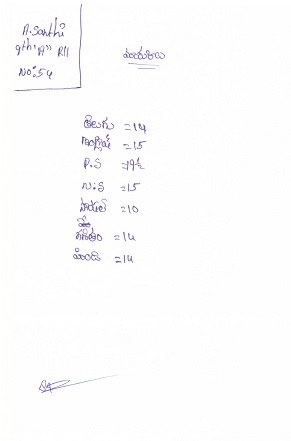 A. Santhi
9th "A" R11
No:54
మార్కులు
తెలుగు = 14
ఇంగ్లీష్ = 15
P.S = 19½
N.S = 15
= 10
గణితం = 14
హిందీ = 14